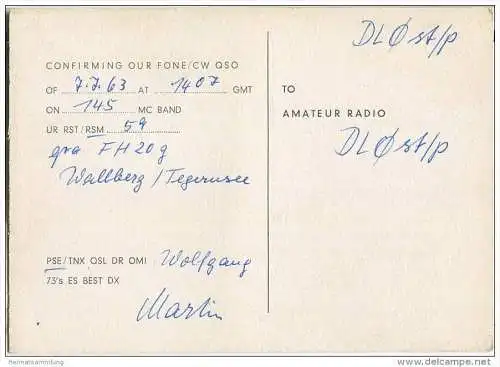 DLØst/p
CONFIRMING OUR FONE/CW QSO
OF 7.7.63 AT 1407 GMT
ON 145 MC BAND
UR RST/RSM 59
qra FH20g
Wallberg/Tegernsee
PSE/TNX QSL DR OM! Wolfgang
73's ES BEST DX
Martin
TO
AMATEUR RADIO
DLØst/p
Heimatsammlung
delcampe.net